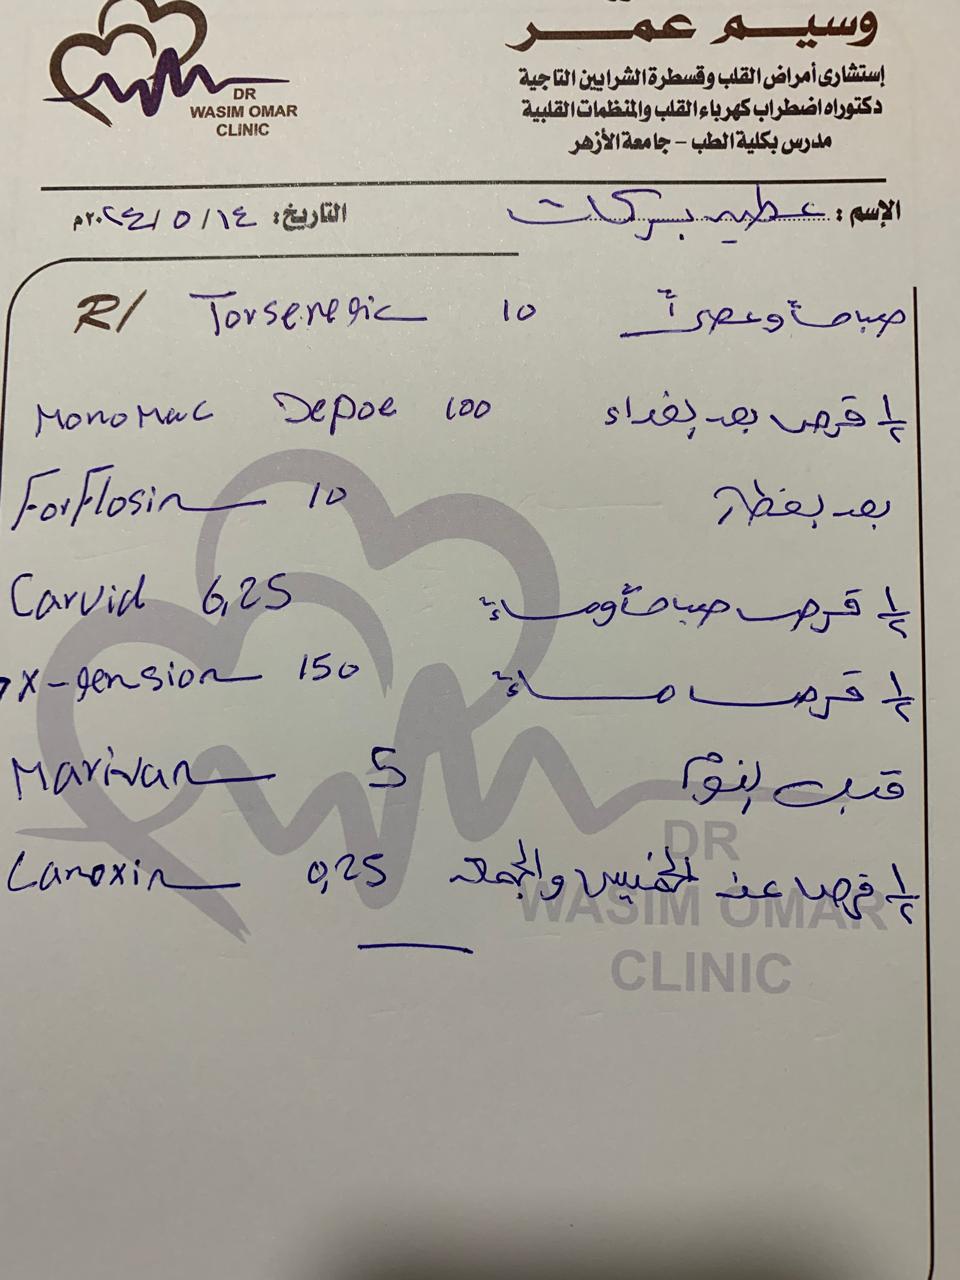 وسيم عمر
إستشارى أمراض القلب وقسطرة الشرايين التاجية
دكتوراه اضطراب كهرباء القلب والمنظمات القلبية
مدرس بكلية الطب – جامعة الأزهر
DR
WASIM OMAR
CLINIC
الإسم : عطيه بركات التاريخ: ١٤ / ٥ / ٢٠٢٤م
R/ Torseretic 10 صباحاً وعصراً
Monomac Depot 100 ½ قرص بعد الغداء
ForFlosin 10 بعد الفطار
Carvid 6,25 ½ قرص صباحاً ومساءً
X-tension 150 ½ قرص مساءً
Marivan 5 قبل النوم
Lanoxin 0,25 ½ قرص عدا الخميس والجمعه
DR
WASIM OMAR
CLINIC